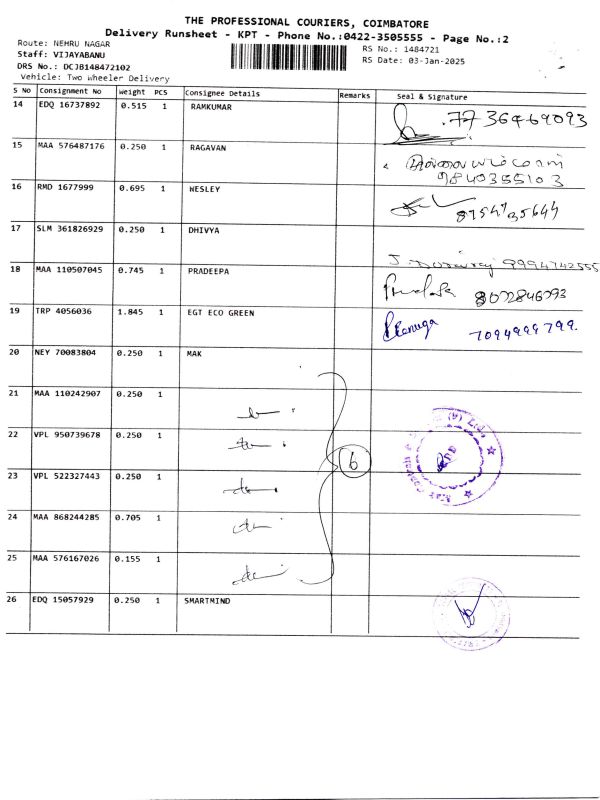 THE PROFESSIONAL COURIERS, COIMBATORE
Delivery Runsheet - KPT - Phone No.:0422-3505555 - Page No.:2
Route: NEHRU NAGAR
Staff: VIJAYABANU
DRS No.: DCJB148472102
Vehicle: Two Wheeler Delivery
RS No.: 1484721
RS Date: 03-Jan-2025
S No Consignment No Weight PCS Consignee Details Remarks Seal & Signature
14 EDQ 16737892 0.515 1 RAMKUMAR
15 MAA 576487176 0.250 1 RAGAVAN 9840355103
16 RMD 1677999 0.695 1 WESLEY
17 SLM 361826929 0.250 1 DHIVYA 9994742555
18 MAA 110507045 0.745 1 PRADEEPA
19 TRP 4056036 1.845 1 EGT ECO GREEN Renuga 7094999799.
20 NEY 70083804 0.250 1 MAK
21 MAA 110242907 0.250 1
22 VPL 950739678 0.250 1
23 VPL 522327443 0.250 1
24 MAA 868244285 0.705 1
25 MAA 576167026 0.155 1
6
26 EDQ 15057929 0.250 1 SMARTMIND